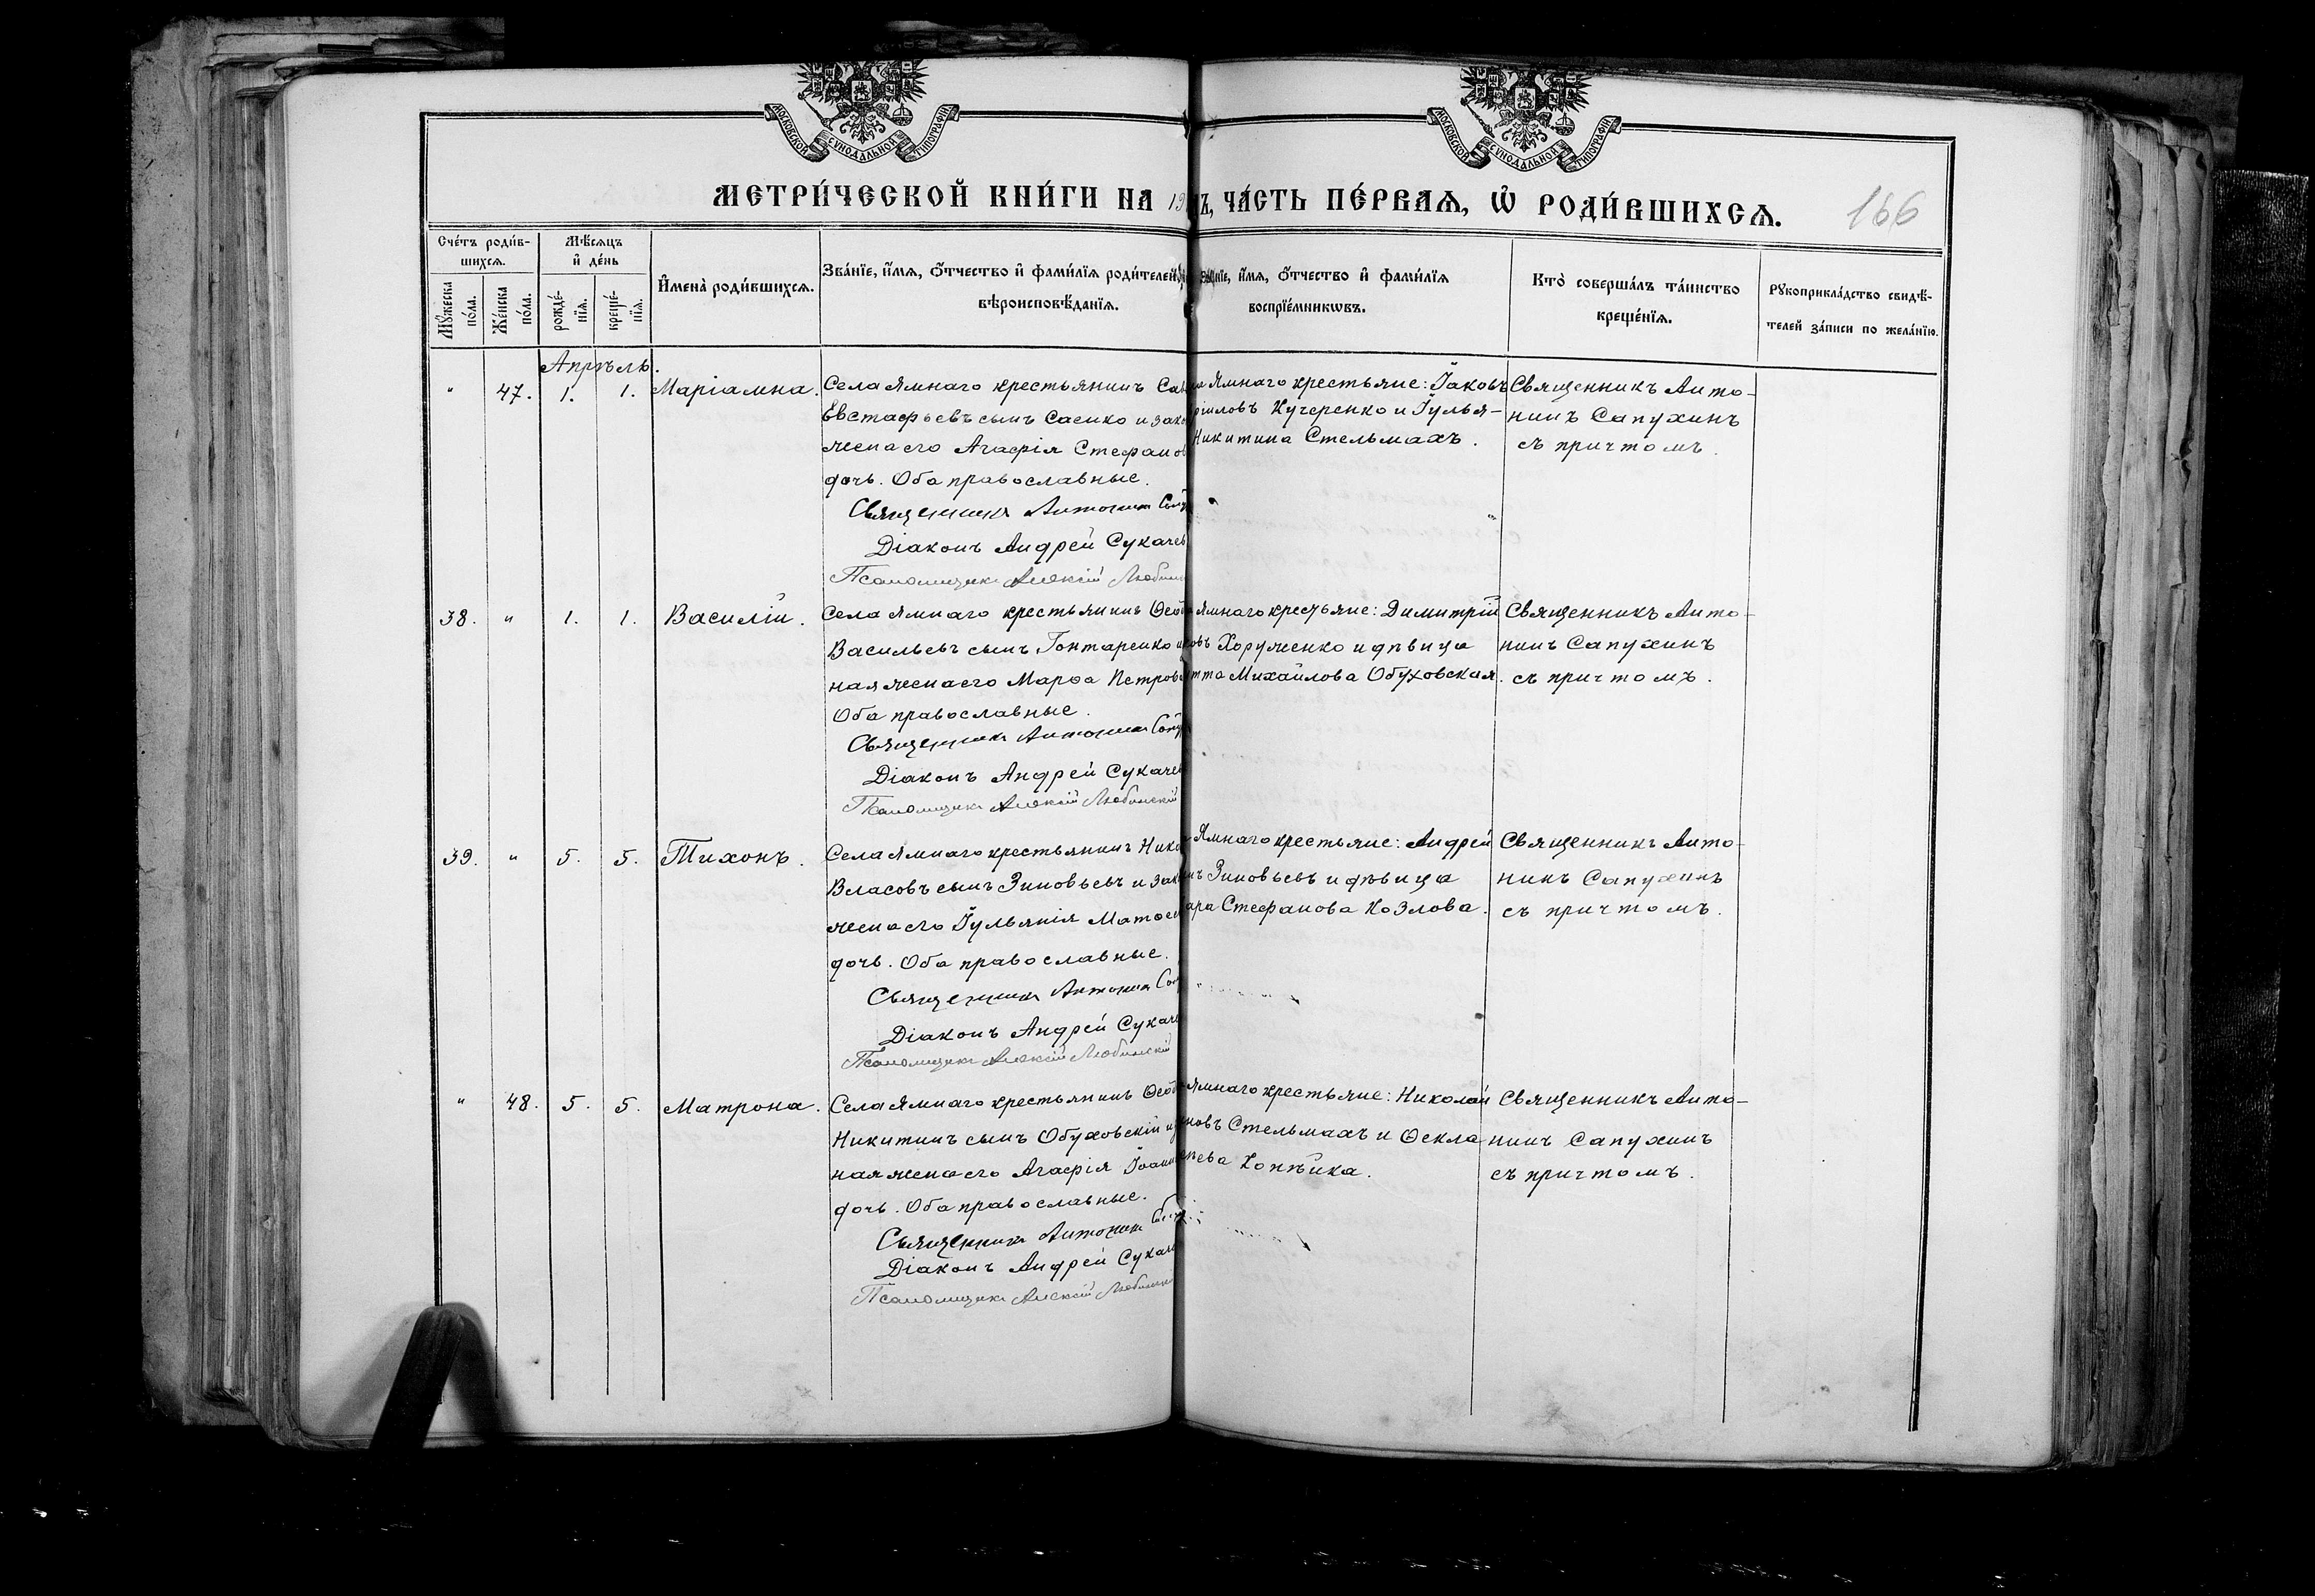 МОСКОВСКОЙ СУНОДАЛЬНОЙ ТИПОГРАФІИ
МОСКОВСКОЙ СУНОДАЛЬНОЙ ТИПОГРАФІИ
МЕТРИ́ЧЕСКОЙ КНИ́ГИ НА 19
Ъ, ЧА́СТЬ ПЕ́РВАѦ, Ѡ҆ РОДИ́ВШИХСѦ.
166
Сче́тъ роди́в-
шихсѧ.
Мѣ́сѧцъ
и҆ де́нь
Мꙋ́жеска
по́ла.
Же́нска
по́ла.
рожде́-
нїѧ.
креще́-
нїѧ.
И҆мена̀ роди́вшихсѧ.
Зва́нїе, и҆́мѧ, ѻ҆́тчество и҆ фами́лїѧ роди́телей,
вѣроисповѣ́данїѧ.
и҆́мѧ, ѻ҆́тчество и҆ фами́лїѧ
воспрїе́мникѡвъ.
Кто̀ соверша́лъ та́инство
креще́нїѧ.
Рꙋкоприкла́дство свидѣ́-
телей за́писи по жела́нїю.
Апрѣль.
" 47. 1. 1. Маріамна.
Села Ямнаго крестьянинъ
Евстафьевъ сынъ Саенко и
жена его Агафія
дочь. Оба православные.
Священникъ Антонинъ
Діаконъ Андрей
Псаломщикъ Алексій
Ямнаго крестьяне: Іаковъ
Кучеренко и Іулья-
Никитина Стельмахъ.
Священникъ Анто-
нинъ Сапухинъ
съ причтомъ.
38. " 1. 1. Василій.
Села Ямнаго крестьянинъ
Васильевъ сынъ Гонтаренко
ная жена его Марѳа
Оба православные.
Священникъ Антонинъ
Діаконъ Андрей
Псаломщикъ Алексій Любинскій
Ямнаго крестьяне: Димитрій
Хоруженко и дѣвица
Михайлова Обуховская.
Священникъ Анто-
нинъ Сапухинъ
съ причтомъ.
39. " 5. 5. Тихонъ.
Села Ямнаго крестьянинъ
Власовъ сынъ Зиновьевъ и
жена его Іульянія
дочь. Оба православные.
Священникъ Антонинъ
Діаконъ Андрей
Псаломщикъ Алексій Любинскій
Ямнаго крестьяне: Андрей
Зиновьевъ и дѣвица
Стефанова Козлова.
Священникъ Анто-
нинъ Сапухинъ
съ причтомъ.
" 48. 5. 5. Матрона.
Села Ямнаго крестьянинъ
Никитинъ сынъ Обуховскій
ная жена его Агафія
дочь. Оба православные.
Священникъ Антонинъ
Діаконъ Андрей
Псаломщикъ Алексій
Ямнаго крестьяне: Николай
Стельмахъ и Ѳекла
Копѣйка.
Священникъ Анто-
нинъ Сапухинъ
съ причтомъ.